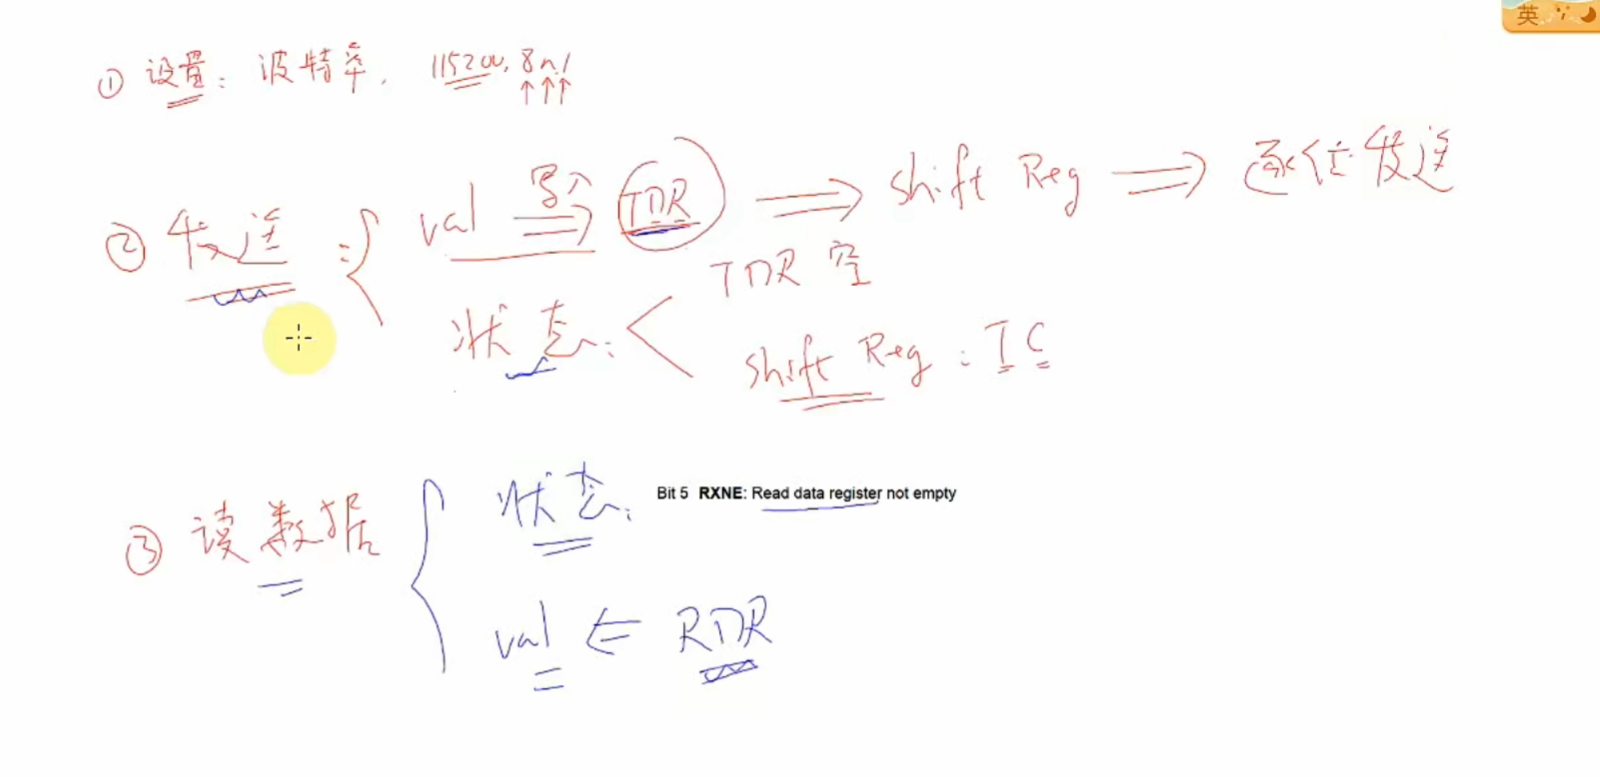 英
① 设置: 波特率, 115200, 8n1
② 发送: val 写入 TDR ⇒ Shift Reg ⇒ 逐位发送
状态: TDR 空
Shift Reg: TC
③ 读数据 状态: Bit 5 RXNE: Read data register not empty
val ⇐ RDR